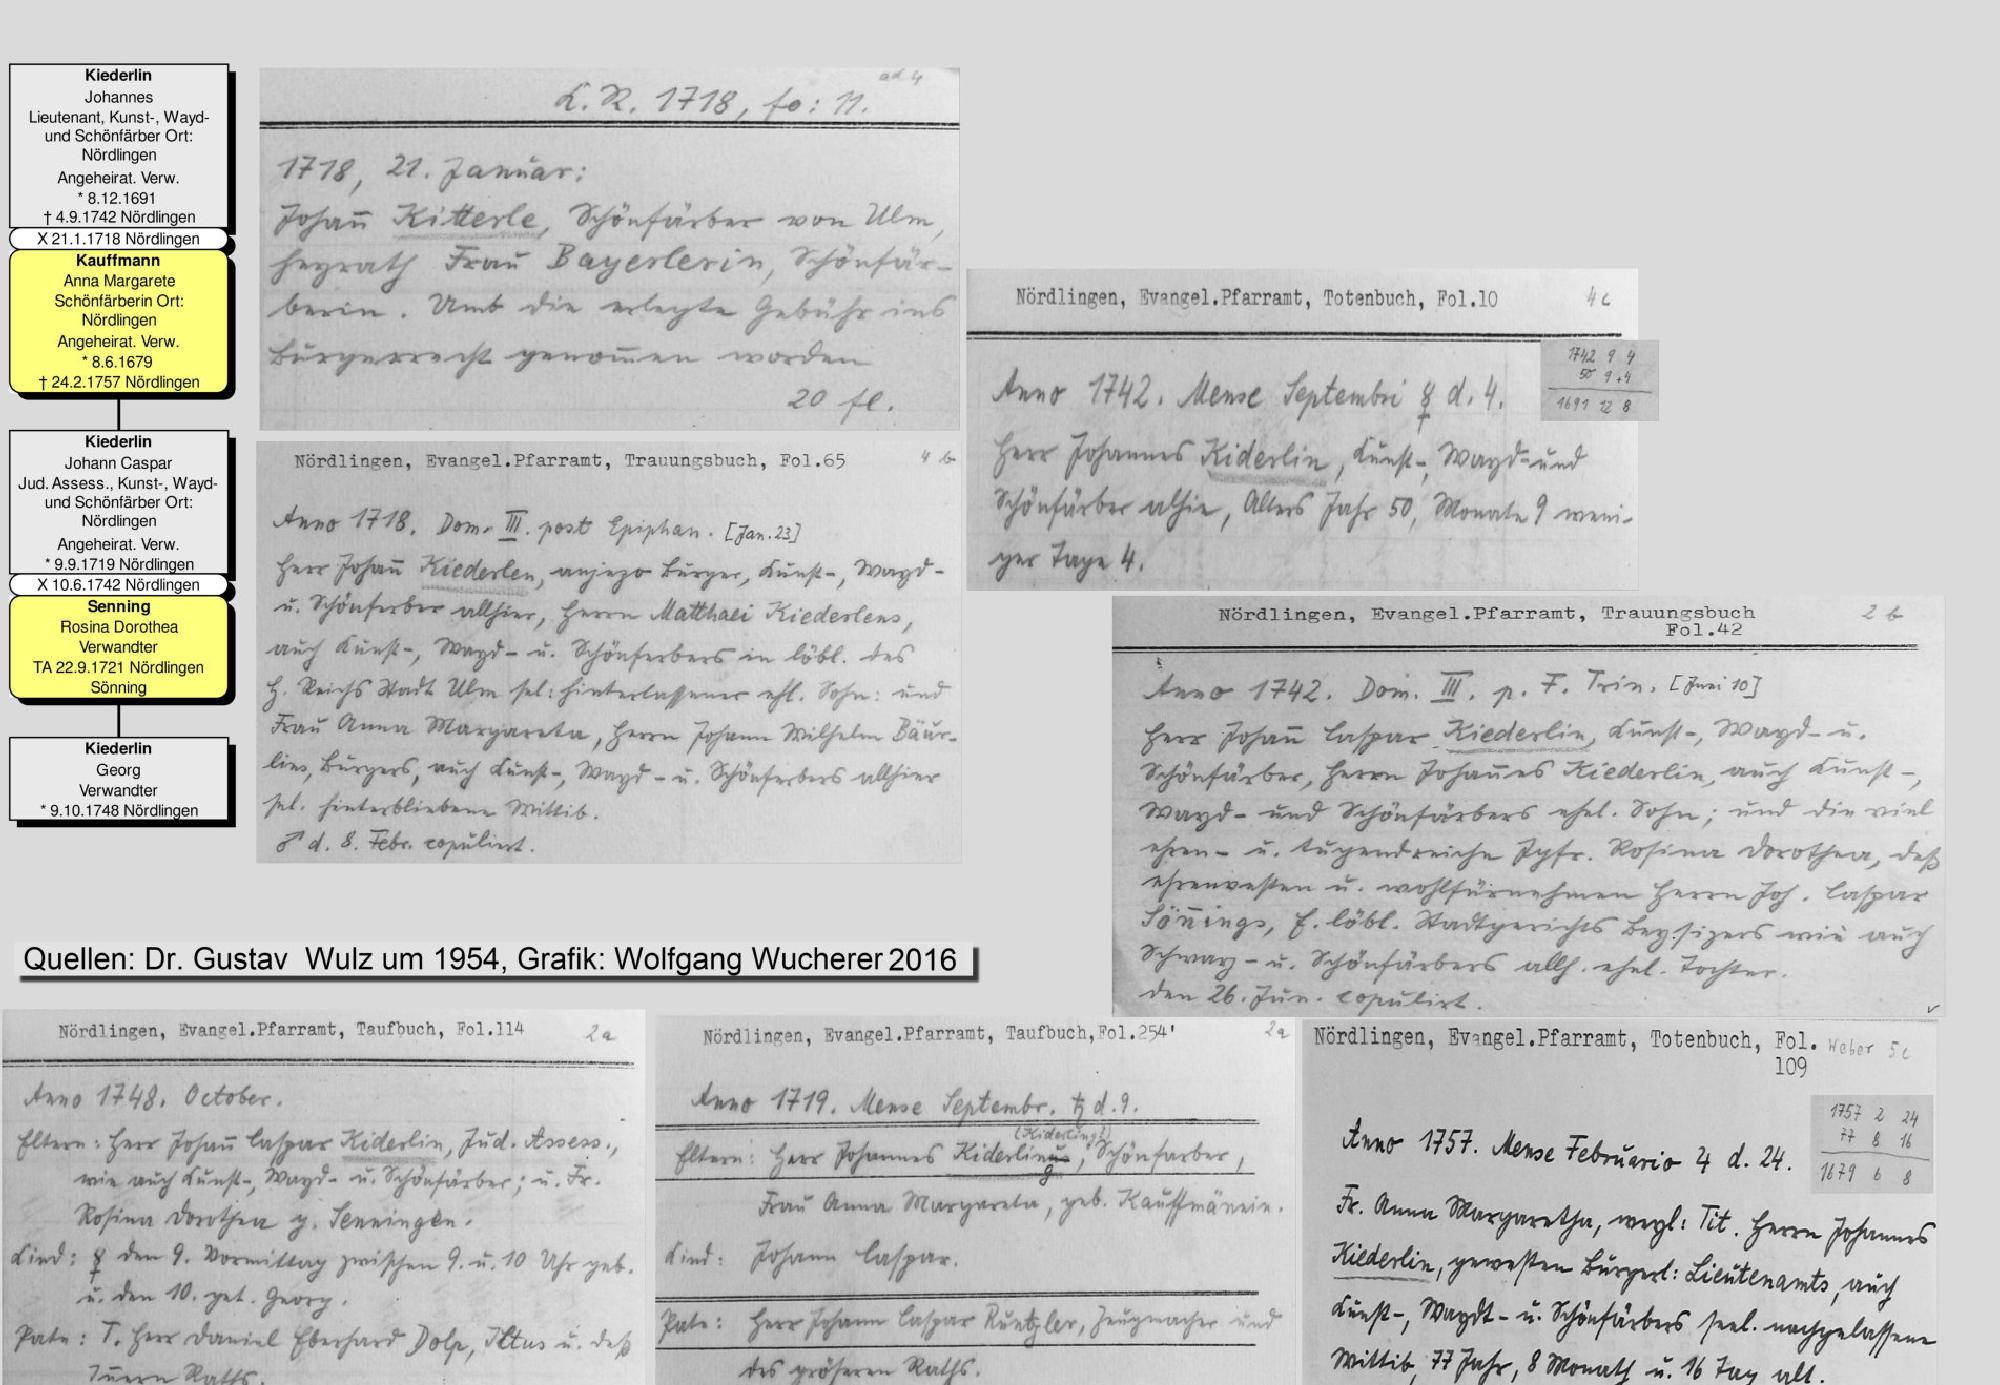 Kiederlin
Johannes
Lieutenant, Kunst-, Wayd-
und Schönfärber Ort:
Nördlingen
Angeheirat. Verw.
* 8.12.1691
† 4.9.1742 Nördlingen
X 21.1.1718 Nördlingen
Kauffmann
Anna Margarete
Schönfärberin Ort:
Nördlingen
Angeheirat. Verw.
* 8.6.1679
† 24.2.1757 Nördlingen
Kiederlin
Johann Caspar
Jud. Assess., Kunst-, Wayd-
und Schönfärber Ort:
Nördlingen
Angeheirat. Verw.
* 9.9.1719 Nördlingen
X 10.6.1742 Nördlingen
Senning
Rosina Dorothea
Verwandter
TA 22.9.1721 Nördlingen
Sönning
Kiederlin
Georg
Verwandter
* 9.10.1748 Nördlingen
ad 4
L. R. 1718, fo: 11.
1718, 21. Januar:
Johañ Kitterle, Schönfärber von Ulm,
heyrath Frau Bayerlerin, Schönfär-
berin. Umb die erlegte Gebühr ins
Bürgerrecht genom̄en worden
20 fl.
Nördlingen, Evangel.Pfarramt, Trauungsbuch, Fol.65
4 b
Anno 1718. Dom. III. post Epiphan. [Jan.23]
Herr Johañ Kiederlen, anjezo Burger, Kunst-, Wayd-
u. Schönferber allhier, Herrn Matthaei Kiederlens,
auch Kunst-, Wayd- u. Schönferbers in löbl. des
H. Reichs Stadt Ulm sel: hinterlassener ehl. Sohn: und
Frau Anna Margareta, Herrn Johann Wilhelm Bäur-
lins, Burgers, auch Kunst-, Wayd- u. Schönferbers allhier
sel. hinterbliebene Wittib.
♂ d. 8. Febr. copulirt.
Nördlingen, Evangel.Pfarramt, Totenbuch, Fol.10
4 c
1742 9 4
50 9 +4
1691 12 8
Anno 1742. Mense Septembri ☿ d. 4.
Herr Johannes Kiderlin, Kunst-, Wayd- und
Schönfärber alhie, Alters Jahr 50, Monate 9 weni-
ger Tage 4.
Nördlingen, Evangel.Pfarramt, Trauungsbuch
Fol.42
2 b
Anno 1742. Dom. III. p. F. Trin. [Juni 10]
Herr Johañ Caspar Kiederlin, Kunst-, Wayd- u.
Schönfärber, Herrn Johañes Kiederlin, auch Kunst-,
Wayd- und Schönfärbers ehel. Sohn; und die viel
ehren- u. tugendreiche Jgfr. Rosina Dorothea, deß
ehrenvesten u. wohlfürnehmen Herrn Joh. Caspar
Söñings, E. löbl. Stadtgerichts Beysizers wie auch
Schwarz- u. Schönfärbers allh. ehel. Tochter.
den 26. Jun. copulirt.
Quellen: Dr. Gustav Wulz um 1954, Grafik: Wolfgang Wucherer 2016
Nördlingen, Evangel.Pfarramt, Taufbuch, Fol.114
2a
Anno 1748. October.
Eltern: Herr Johañ Caspar Kiderlin, Jud. Assess.,
wie auch Kunst-, Wayd- u. Schönfärber; u. Fr.
Rosina Dorothea g. Senningen.
Kind: ☿ den 9. Vormittag zwischen 9. u. 10 Uhr geb.
u. den 10. get. Georg.
Pate: T. Herr Daniel Eberhard Dolp, Ictus u. deß
Innern Raths.
Nördlingen, Evangel.Pfarramt, Taufbuch,Fol.254'
2a
Anno 1719. Mense Septembr. ♄ d. 9.
(Kiderling!)
Eltern: Herr Johannes Kiderling, Schönfarber,
Frau Anna Margareta, geb. Kauffmännin.
Kind: Johann Caspar.
Pate: Herr Johann Caspar Runtzler, Zeugmacher und
des gröseren Raths.
Nördlingen, Evangel.Pfarramt, Totenbuch, Fol.
109
Weber 5c
1757 2 24
77 8 16
1679 6 8
Anno 1757. Mense Februario ♃ d. 24.
Fr. Anna Margaretha, weyl: Tit. Herrn Johannes
Kiederlin, gewesten Bürgerl: Lieutenamts, auch
Kunst-, Waydt- u. Schönfärbers seel. nachgelassene
Wittib, 77 Jahr, 8 Monath u. 16 Tag alt.